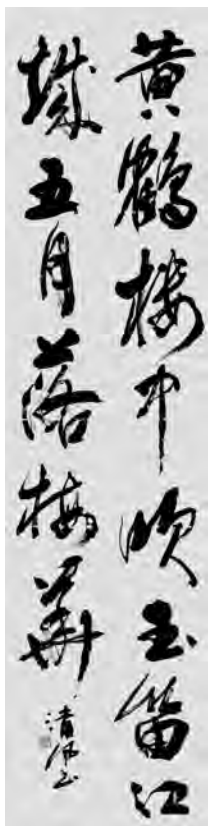 黄鹤楼中吹玉笛江
城五月落梅華
清風書